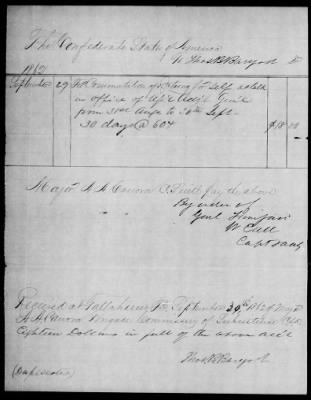 The Confederate States of America
To Thos B Barger Dr
1862
September 29 For Commutation of Rations for Self as clerk
in office of
from 31st Aug to 30th Sept
30 days @ 60¢ $18 00
Major A A Canova C. S. will pay the above
By order of
Genl Finegan
W Call
Capt &
Received at Tallahassee Fla September 30th 1862 of Major
A A Canova Brigade Commissary of Subsistence
Eighteen Dollars in full of the above acct
Thos B Barger
(Duplicates)